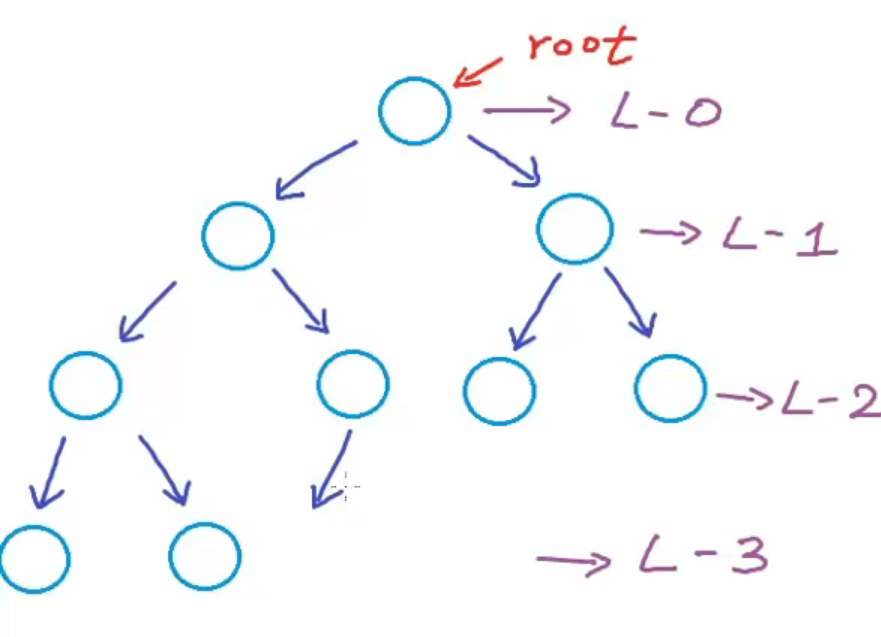 root
L-0
L-1
L-2
L-3